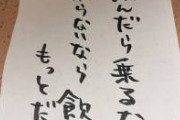 んだら乗るな
らないなら飲
もっとだ